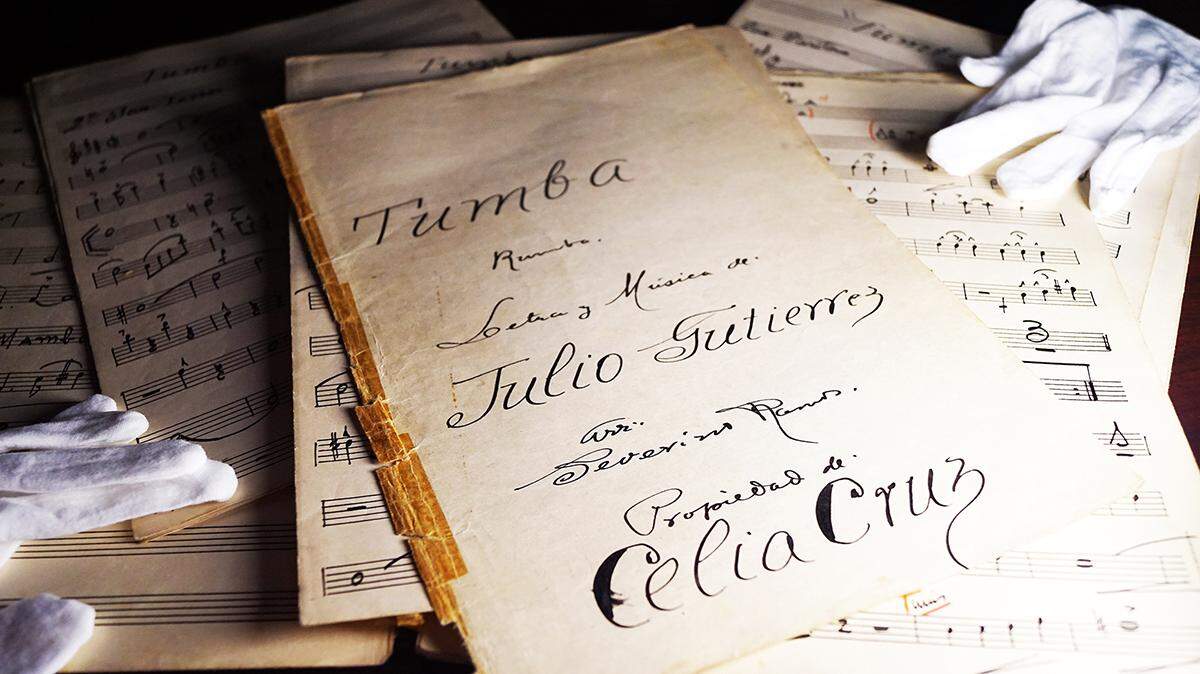 Tumba
Rumba.
Letra y Música de:
Julio Gutierrez
arr:.
Severino Ramos.
Propiedad de:
Celia Cruz
Tumba
Tumba
Tumba
Mambo
2